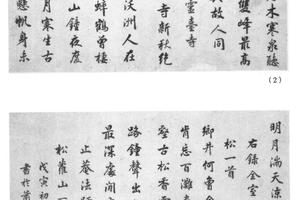 木寒泉聽
雙峰最高
故人同
靈臺寺
寺新秋絕
沃洲人在
鶴曾棲
山鐘夜度
月寒生古
懸帆身未
(2)
明月滿天涼
右錄全室
松一首
鄉井何曾
肯忘百灘
壑古松看
路鐘聲出
最深處
止菴法
松蘿山
戊寅初
書於